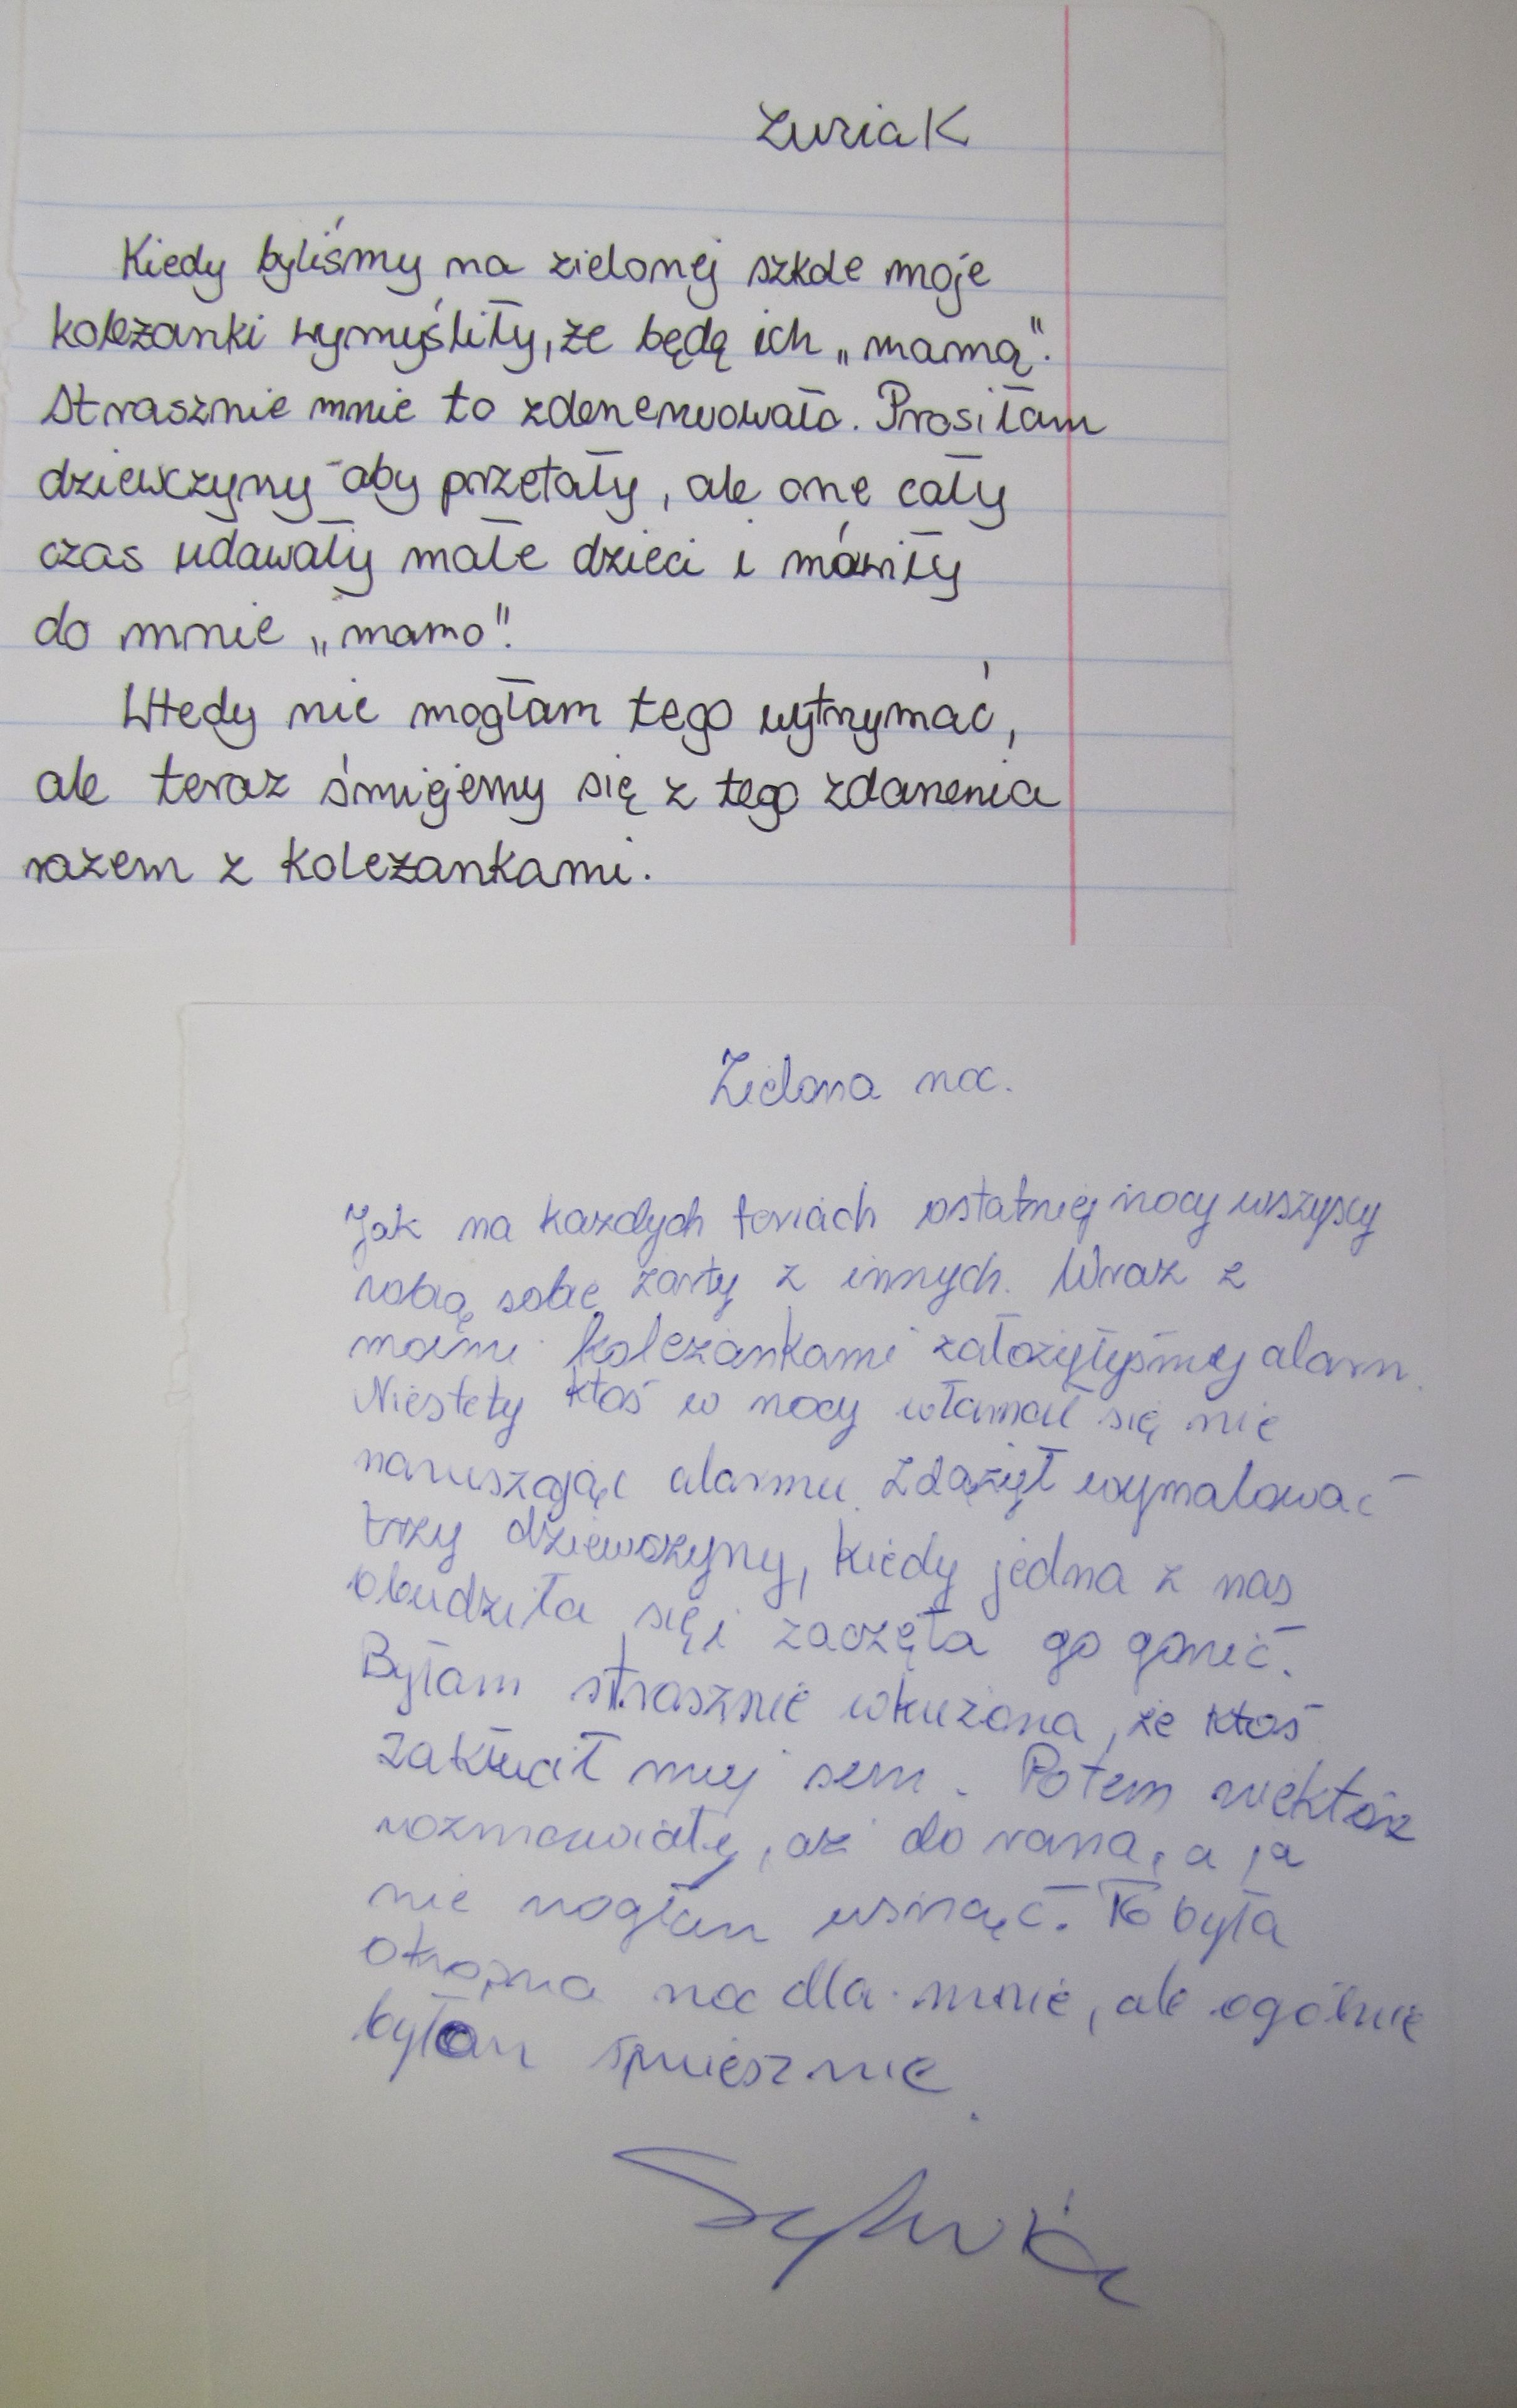 Zuzia K
Kiedy byliśmy na zielonej szkole moje
koleżanki wymyśliły, że będę ich „mamą”.
Strasznie mnie to zdenerwowało. Prosiłam
dziewczyny aby przetały, ale one cały
czas udawały małe dzieci i mówiły
do mnie „mamo”.
Wtedy nie mogłam tego wytrzymać,
ale teraz śmiejemy się z tego zdarzenia
razem z koleżankami.
Zielona noc.
Jak na każdych feriach ostatniej nocy wszyscy
robią sobie żarty z innych. Wraz z
moimi koleżankami założyłyśmy alarm.
Niestety ktoś w nocy włamał się nie
naruszając alarmu. Zdążył wymalować
trzy dziewczyny, kiedy jedna z nas
obudziła się i zaczęła go gonić.
Byłam strasznie wkużona, że ktoś
zakłucił muj sen. Potem niektóre
rozmawiały, aż do rana, a ja
nie mogłam usnąć. To była
okropna noc dla mnie, ale ogólnie
było śmiesznie.
Sylwia